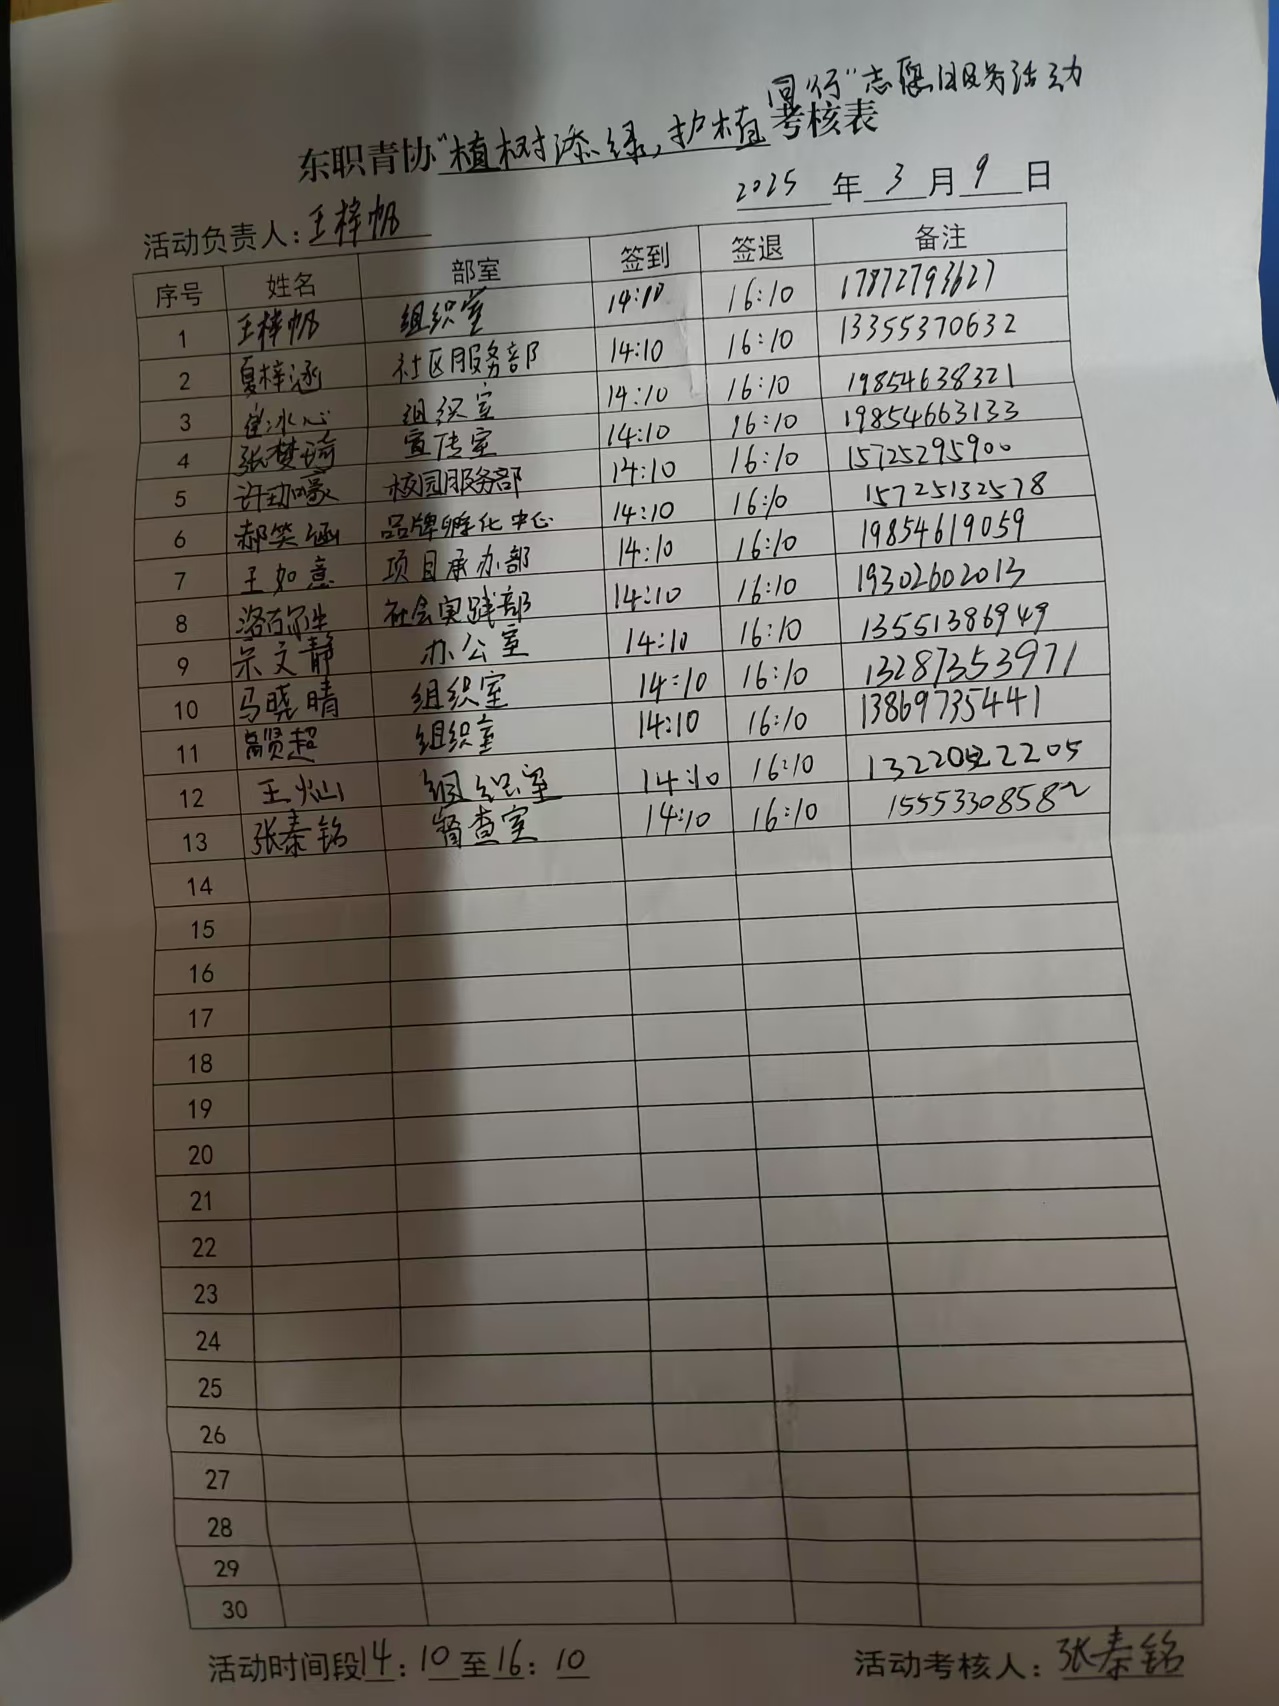 同行"志愿服务活动
东职青协"植树添绿,护植考核表
2025年3月9日
活动负责人:王梓帆
序号 姓名 部室 签到 签退 备注
1 王梓帆 组织室 14:10 16:10 17872793627
2 夏梓涵 社区服务部 14:10 16:10 13355370632
3 崔冰心 组织室 14:10 16:10 19854638321
4 张梦琦 宣传室 14:10 16:10 19854663133
5 校园服务部 14:10 16:10 15725295900
6 郝笑涵 品牌孵化中心 14:10 16:10 15725132578
7 王如意 项目承办部 14:10 16:10 19854619059
8 社会实践部 14:10 16:10 19302602013
9 宋文静 办公室 14:10 16:10 13551386949
10 马晓晴 组织室 14:10 16:10 13287353971
11 高贤超 组织室 14:10 16:10 13869735441
12 王灿 组织室 14:10 16:10
13 张秦铭 督查室 14:10 16:10 15553308582
14
15
16
17
18
19
20
21
22
23
24
25
26
27
28
29
30
活动时间段14:10至16:10 活动考核人:张秦铭